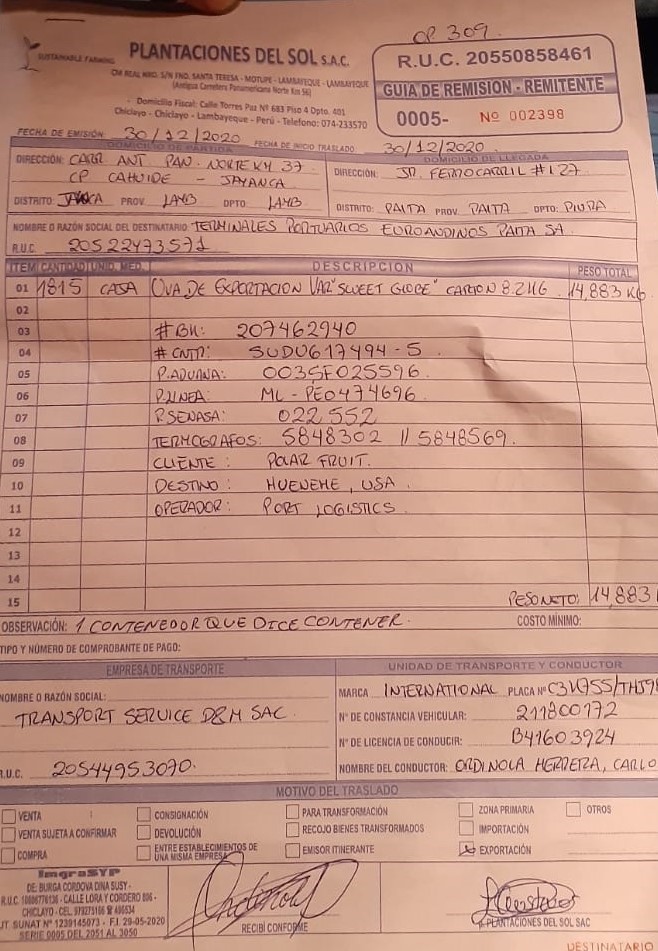 OP 309.
SUSTAINABLE FARMING
PLANTACIONES DEL SOL S.A.C.
CM REAL NRO. S/N FND. SANTA TERESA - MOTUPE - LAMBAYEQUE - LAMBAYEQUE
(Antigua Carretera Panamericana Norte Km 56)
- Domicilio Fiscal: Calle Torres Paz Nº 683 Piso 4 Dpto. 401
Chiclayo - Chiclayo - Lambayeque - Perú - Telefono: 074-233570
R.U.C. 20550858461
GUIA DE REMISION - REMITENTE
0005- Nº 002398
FECHA DE EMISIÓN: 30/12/2020 FECHA DE INICIO TRASLADO: 30/12/2020
DOMICILIO DE PARTIDA DOMICILIO DE LLEGADA
DIRECCIÓN: CARR ANT. PAN. NORTE KM 37
CP CAHUIDE - JAYANCA
DIRECCIÓN: JR. FERROCARRIL #127
DISTRITO: PROV. LAMB DPTO: LAMB
DISTRITO: PAITA PROV. PAITA DPTO: PIURA
NOMBRE O RAZÓN SOCIAL DEL DESTINATARIO: TERMINALES PORTUARIOS EUROANDINOS PAITA SA.
R.U.C. 20522473571
ITEM CANTIDAD UNID. MED. DESCRIPCION PESO TOTAL
01 1815 CAJA UVA DE EXPORTACION VAR "SWEET GLOBE" CARTON 8.2 KG 14,883 KG
02
03 #BK: 207462940
04 # CNTR: SUDU617494-5
05 P.ADUANA: 0035F025596
06 P.LINEA: ML-PE0474696
07 P.SENASA: 022552
08 TERMOGRAFOS: 5848302 // 5848569.
09 CLIENTE: POLAR FRUIT.
10 DESTINO: HUENEME, USA.
11 OPERADOR: PORT LOGISTICS
12
13
14
15 PESO NETO: 14,883
OBSERVACIÓN: 1 CONTENEDOR QUE DICE CONTENER. COSTO MÍNIMO:
TIPO Y NÚMERO DE COMPROBANTE DE PAGO:
EMPRESA DE TRANSPORTE UNIDAD DE TRANSPORTE Y CONDUCTOR
NOMBRE O RAZÓN SOCIAL:
TRANSPORT SERVICE D&M SAC.
R.U.C. 20544953070.
MARCA INTERNATIONAL PLACA Nº
Nº DE CONSTANCIA VEHICULAR: 211800172
Nº DE LICENCIA DE CONDUCIR: B41603924
NOMBRE DEL CONDUCTOR: ORDINOLA HERRERA, CARLO
MOTIVO DEL TRASLADO
VENTA CONSIGNACIÓN PARA TRANSFORMACIÓN ZONA PRIMARIA OTROS
VENTA SUJETA A CONFIRMAR DEVOLUCIÓN RECOJO BIENES TRANSFORMADOS IMPORTACIÓN
COMPRA ENTRE ESTABLECIMIENTOS DE UNA MISMA EMPRESA EMISOR ITINERANTE EXPORTACIÓN
ImgraSYP
DE: BURGA CORDOVA DINA SUSY -
CALLE LORA Y CORDERO 806 -
CHICLAYO -
UT. SUNAT Nº 1239145073 - F.I. 29-05-2020
SERIE 0005 DEL 2051 AL 3050
RECIBÍ CONFORME
P. PLANTACIONES DEL SOL SAC
DESTINATARIO